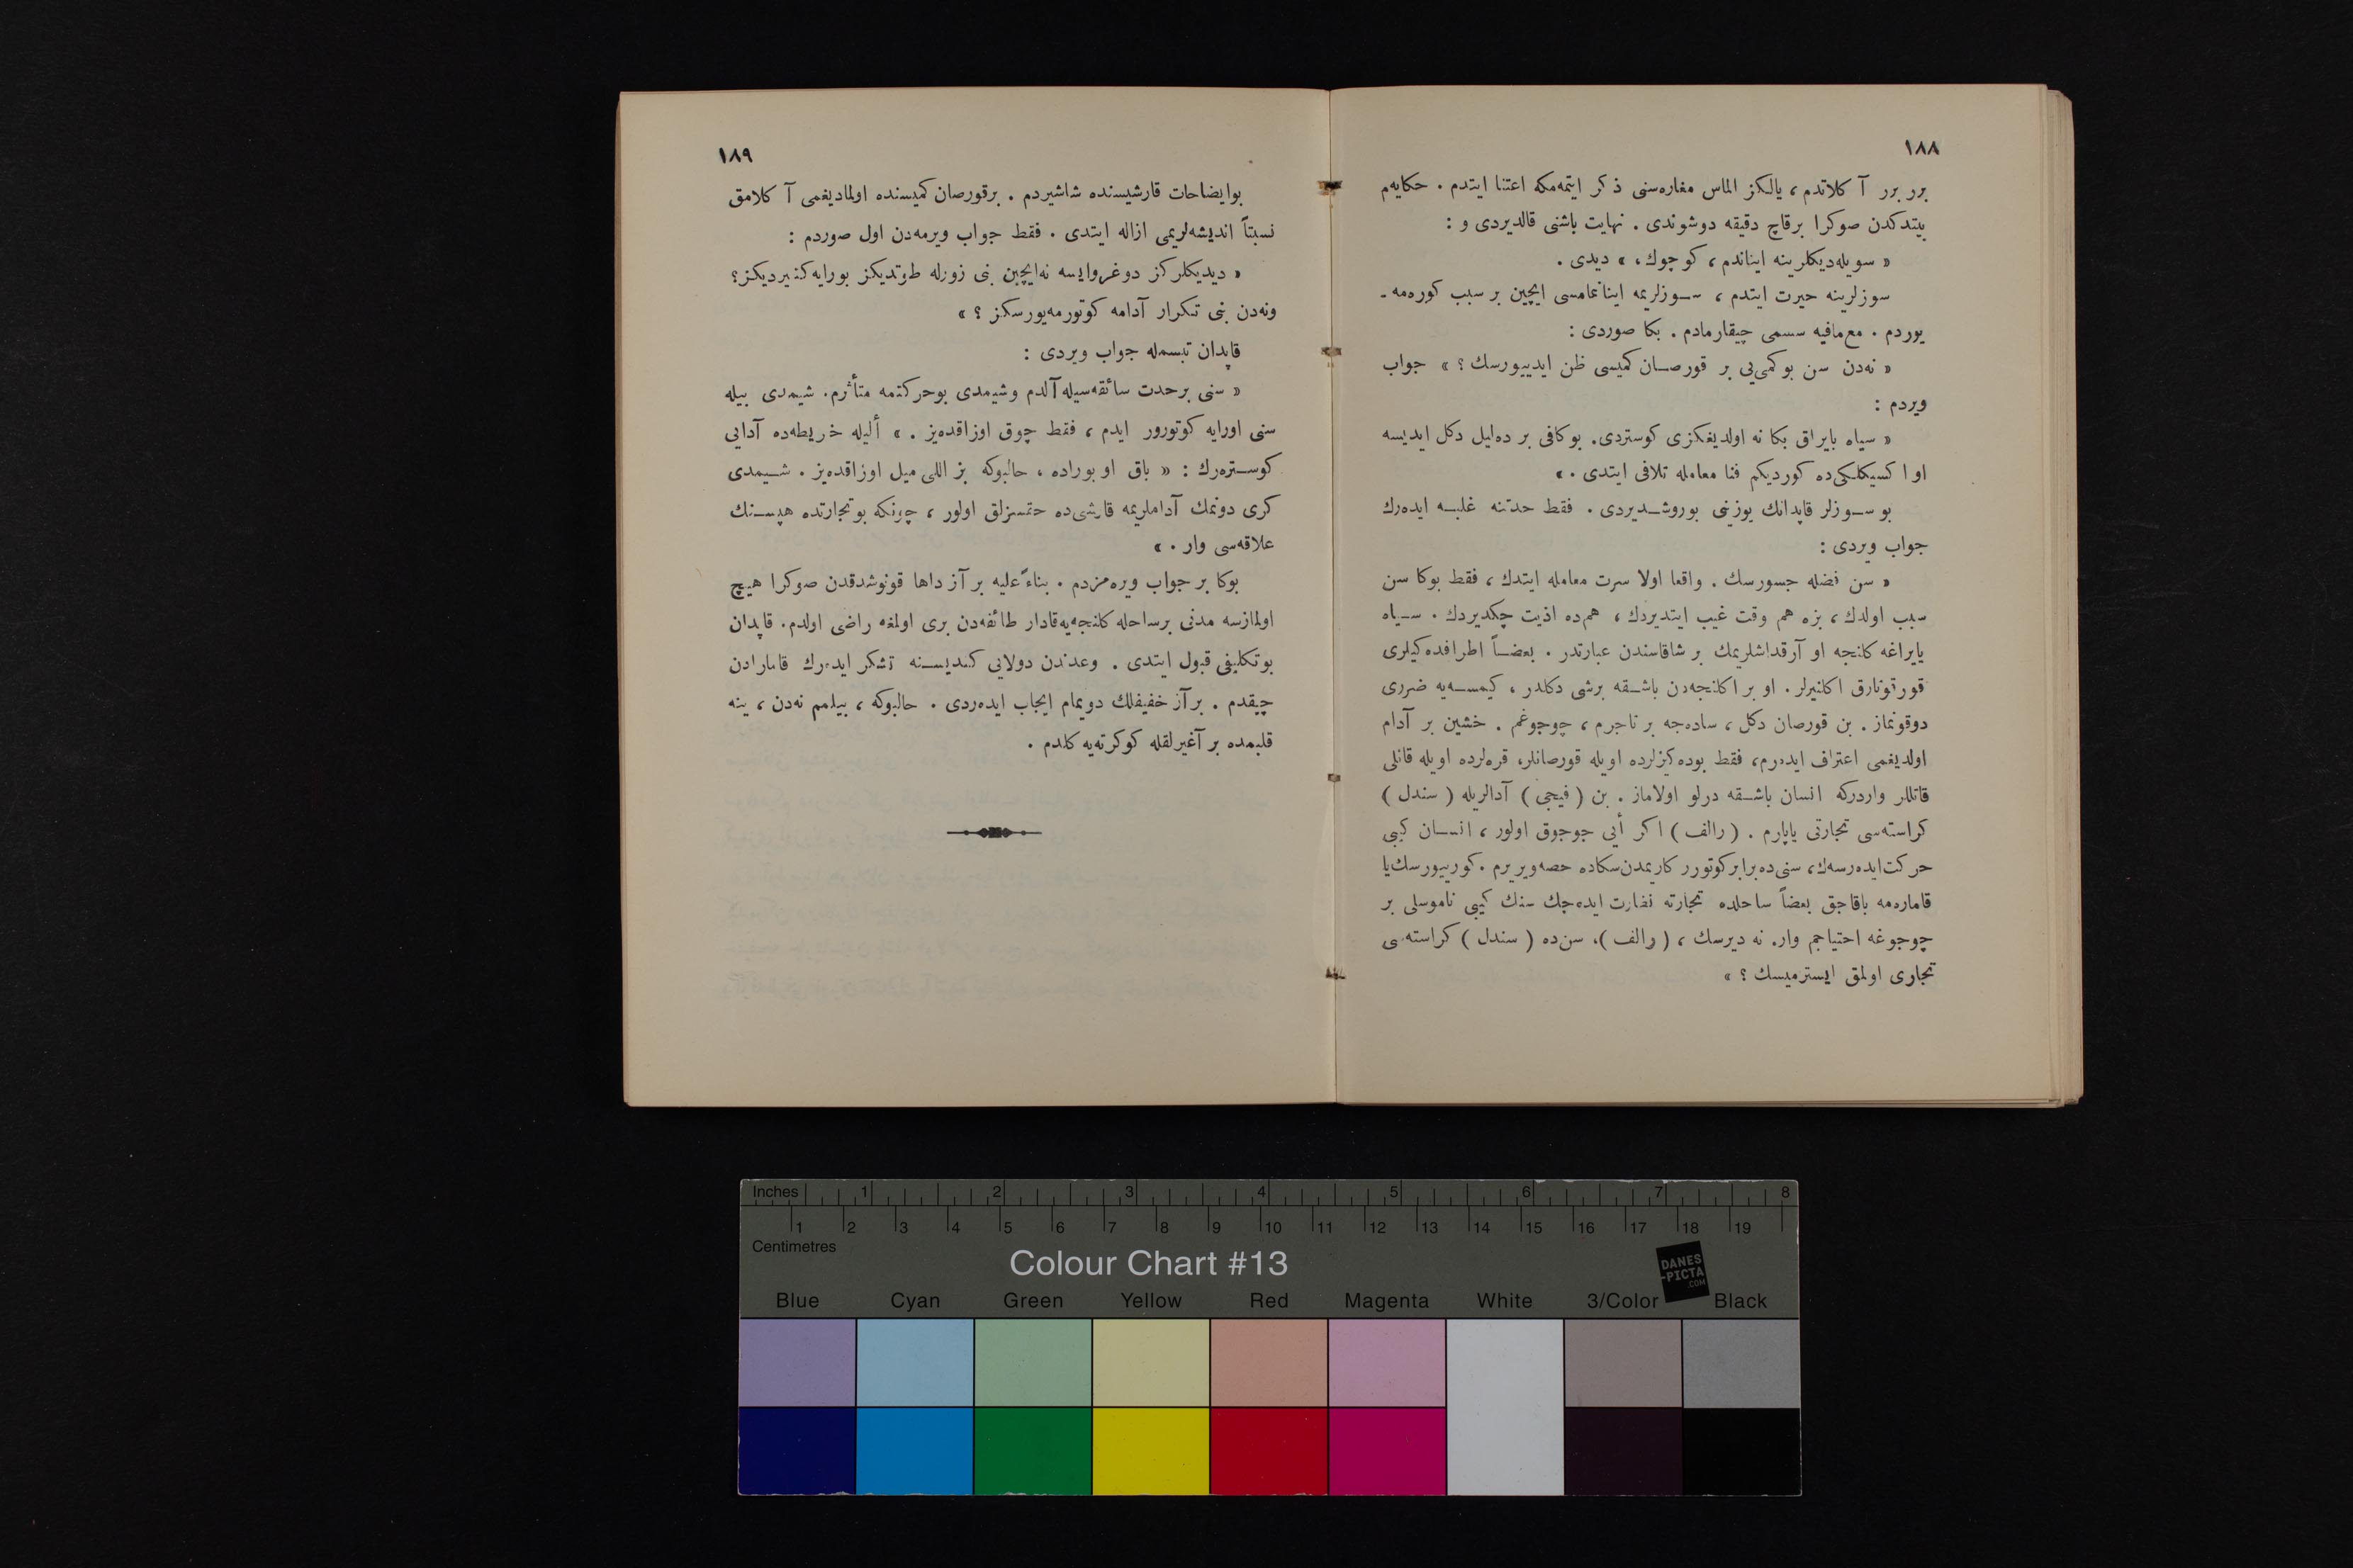 ١٨٨
برر برر آ كلاتدم ، يالكز الماس مغاره‌سنى ذكر ايتمه‌مكه اعتنا ايتدم . حكايه‌م
بيتدكدن صوكرا برقاچ دقيقه دوشوندى . نهايت باشنى قالديردى و :
« سويله‌ديكلرينه ايناندم ، كوچوك ، » ديدى .
سوزلرينه حيرت ايتدم ، سوزلريمه اينانمامسى ايچين بر سبب كوره‌مه ـ
يوردم . مع‌مافيه سسمى چيقارمادم . بكا صوردى :
« نه‌دن سن بو كمى‌يى بر قورصان كميسى ظن ايدييورسك ؟ » جواب
ويردم :
« سياه بايراق بكا نه اولديغكزى كوستردى. بو كافى بر ده‌ليل دكل ايديسه
او ا كسيكلكى‌ده كورديكم فنا معامله تلافى ايتدى . »
بو سوزلر قاپدانك يوزينى بوروشديردى . فقط حدتنه غلبه ايده‌رك
جواب ويردى :
« سن فضله جسورسك . واقعا اولا سرت معامله ايتدك ، فقط بوكا سن
سبب اولدك ، بزه هم وقت غيب ايتديردك ، هم‌ده اذيت چكديردك . سياه
بايراغه كلنجه او آرقداشلريمك بر شاقاسندن عبارتدر . بعضاً اطرافده‌كيلرى
قورتونارق اكلنيرلر . او بر اكلنجه‌دن باشقه برشى دكلدر ، كيمسه‌يه ضررى
دوقونماز . بن قورصان دكل ، ساده‌جه بر تاجرم ، چوجوغم . خشين بر آدام
اولديغمى اعتراف ايده‌رم، فقط بوده‌كيزلرده اويله قورصانلر، قره‌لرده اويله قانلى
قاتللر واردركه انسان باشقه درلو اولاماز . بن ( فيجى ) آدالريله ( سندل )
كراسته‌سى تجارتى ياپارم . ( رالف ) اكر أيى جوجوق اولور ، انسان كيبى
حركت‌ايده‌رسه‌ك، سنى‌ده‌برابر كوتورر كاريمدن‌سكاده حصه‌ويريرم . كورييورسك‌يا
قاماره‌مه باقاجق بعضاً ساحلده تجارته نظارت ايده‌جك سنك كيبى ناموسلى بر
چوجوغه احتياجم وار. نه ديرسك ، ( رالف )، سن‌ده ( سندل ) كراسته‌سى
تجارى اولمق ايسترميسك ؟ »
١٨٩
بوايضاحات قارشيسنده شاشيردم . برقورصان كميسنده اولماديغمى آ كلامق
نسبتاً انديشه‌لريمى ازاله ايتدى . فقط جواب ويرمه‌دن اول صوردم :
« ديديكلركز دوغروايسه نه‌ايچين بنى زورله طوتديكز بورايه‌كتيرديكز؟
ونه‌دن بنى تكرار آدامه كوتورمه‌يورسكز ؟ »
قاپدان تبسمله جواب ويردى :
« سنى برحدت سائقه‌سيله آلدم وشيمدى بوحركتمه متأثرم. شيمدى بيله
سنى اورايه كوتورور ايدم ، فقط چوق اوزاقده‌يز . » أليله خريطه‌ده آدايى
كوستره‌رك : « باق او بوراده ، حالبوكه بز اللى ميل اوزاقده‌يز . شيمدى
كرى دونمك آداملريمه قارشى‌ده حقسزلق اولور ، چونكه بوتجارتده هپسنك
علاقه‌سى وار . »
بوكا بر جواب ويره‌مزدم . بناءً‌عليه بر آز داها قونوشدقدن صوكرا هيچ
اولمازسه مدنى برساحله كلنجه‌يه‌قادار طائفه‌دن برى اولمغه راضى اولدم. قاپدان
بوتكليفى قبول ايتدى . وعدندن دولايى كنديسنه تشكر ايده‌رك قامارادن
چيقدم . بر آز خفيفلك دويمام ايجاب ايده‌ردى . حالبوكه ، بيلمم نه‌دن ، ينه
قلبمده بر آغيرلقله كوكرته‌يه كلدم .
Inches 1 2 3 4 5 6 7 8
1 2 3 4 5 6 7 8 9 10 11 12 13 14 15 16 17 18 19
Centimetres
Colour Chart #13
DANES
-PICTA
.COM
Blue Cyan Green Yellow Red Magenta White 3/Color Black